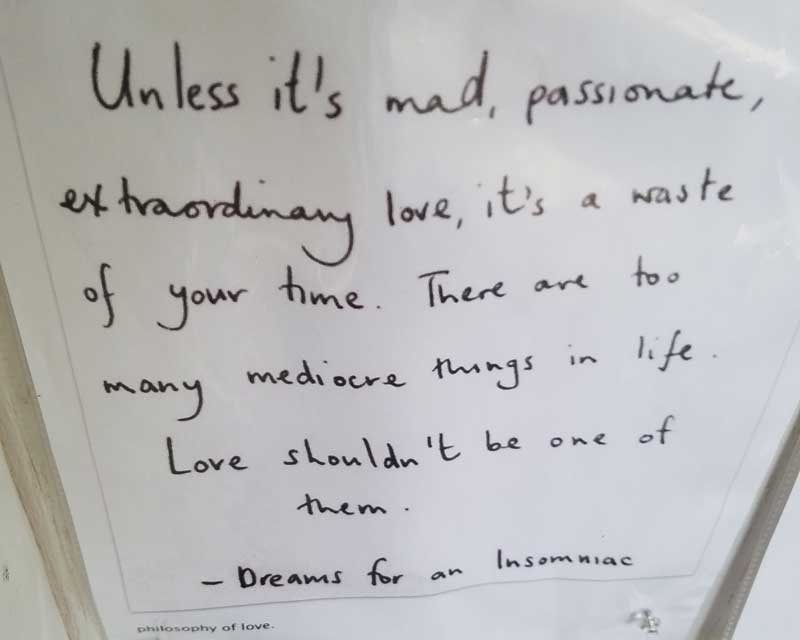 Unless it's mad, passionate,
extraordinary love, it's a waste
of your time. There are too
many mediocre things in life.
Love shouldn't be one of
them.
– Dreams for an Insomniac
philosophy of love.